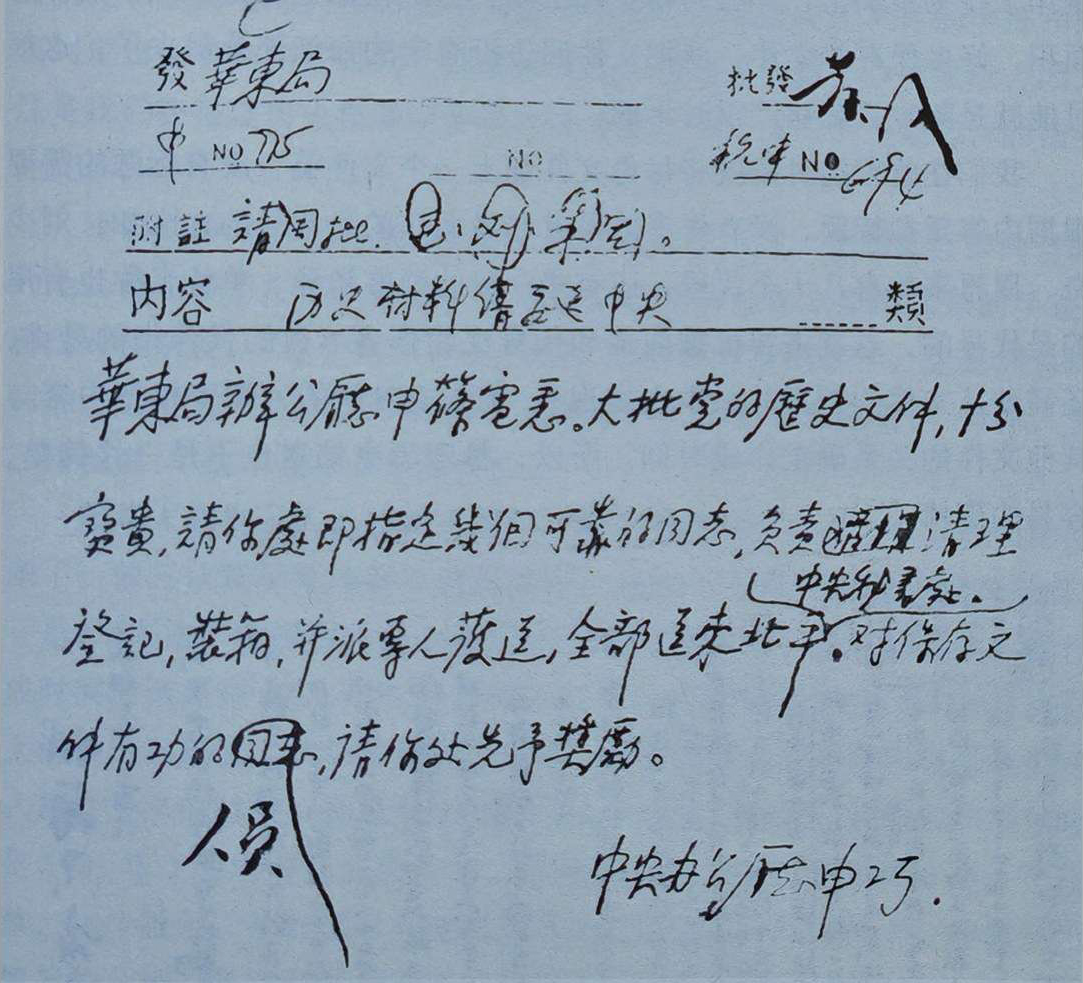 發 華東局 批發
中 NO 775 NO 税中 NO 694
附註 請周批.
内容 历史材料請送中央 類
華東局辦公廳申篠電悉。大批党的歷史文件,十分
寶貴,請你處即指定幾個可靠的同志,負責整理清理
中央秘書處.
登記,裝箱,并派專人護送,全部送來北平。对保存文
件有功的同志,請你处先予獎勵。
人員
中央办公厅申巧.